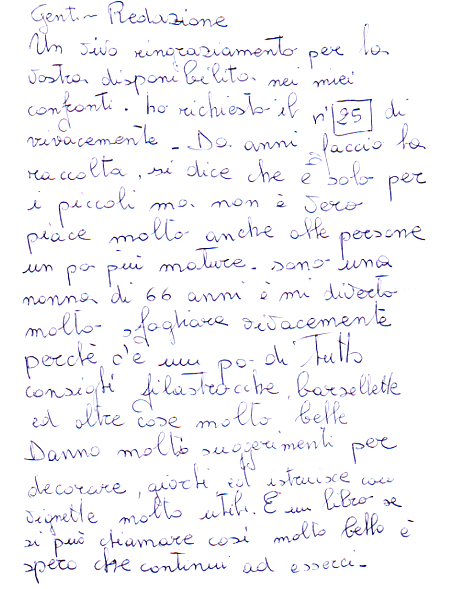 Gent.~ Redazione
Un vivo ringraziamento per la
vostra disponibilità nei miei
confronti. ho richiesto il n° 25 di
vivacemente - Da anni faccio la
raccolta, si dice che è solo per
i piccoli ma non è vero
piace molto anche alle persone
un po più mature. sono una
nonna di 66 anni è mi diverto
molto sfogliare vivacemente
perchè c'è un po di Tutto
consigli filastrocche, barzellette
ed altre cose molto belle
Danno molti suggerimenti per
decorare, giochi ed istruisce con
vignette molto utili. È un libro se
si può chiamare così molto bello è
spero che continui ad esserci -